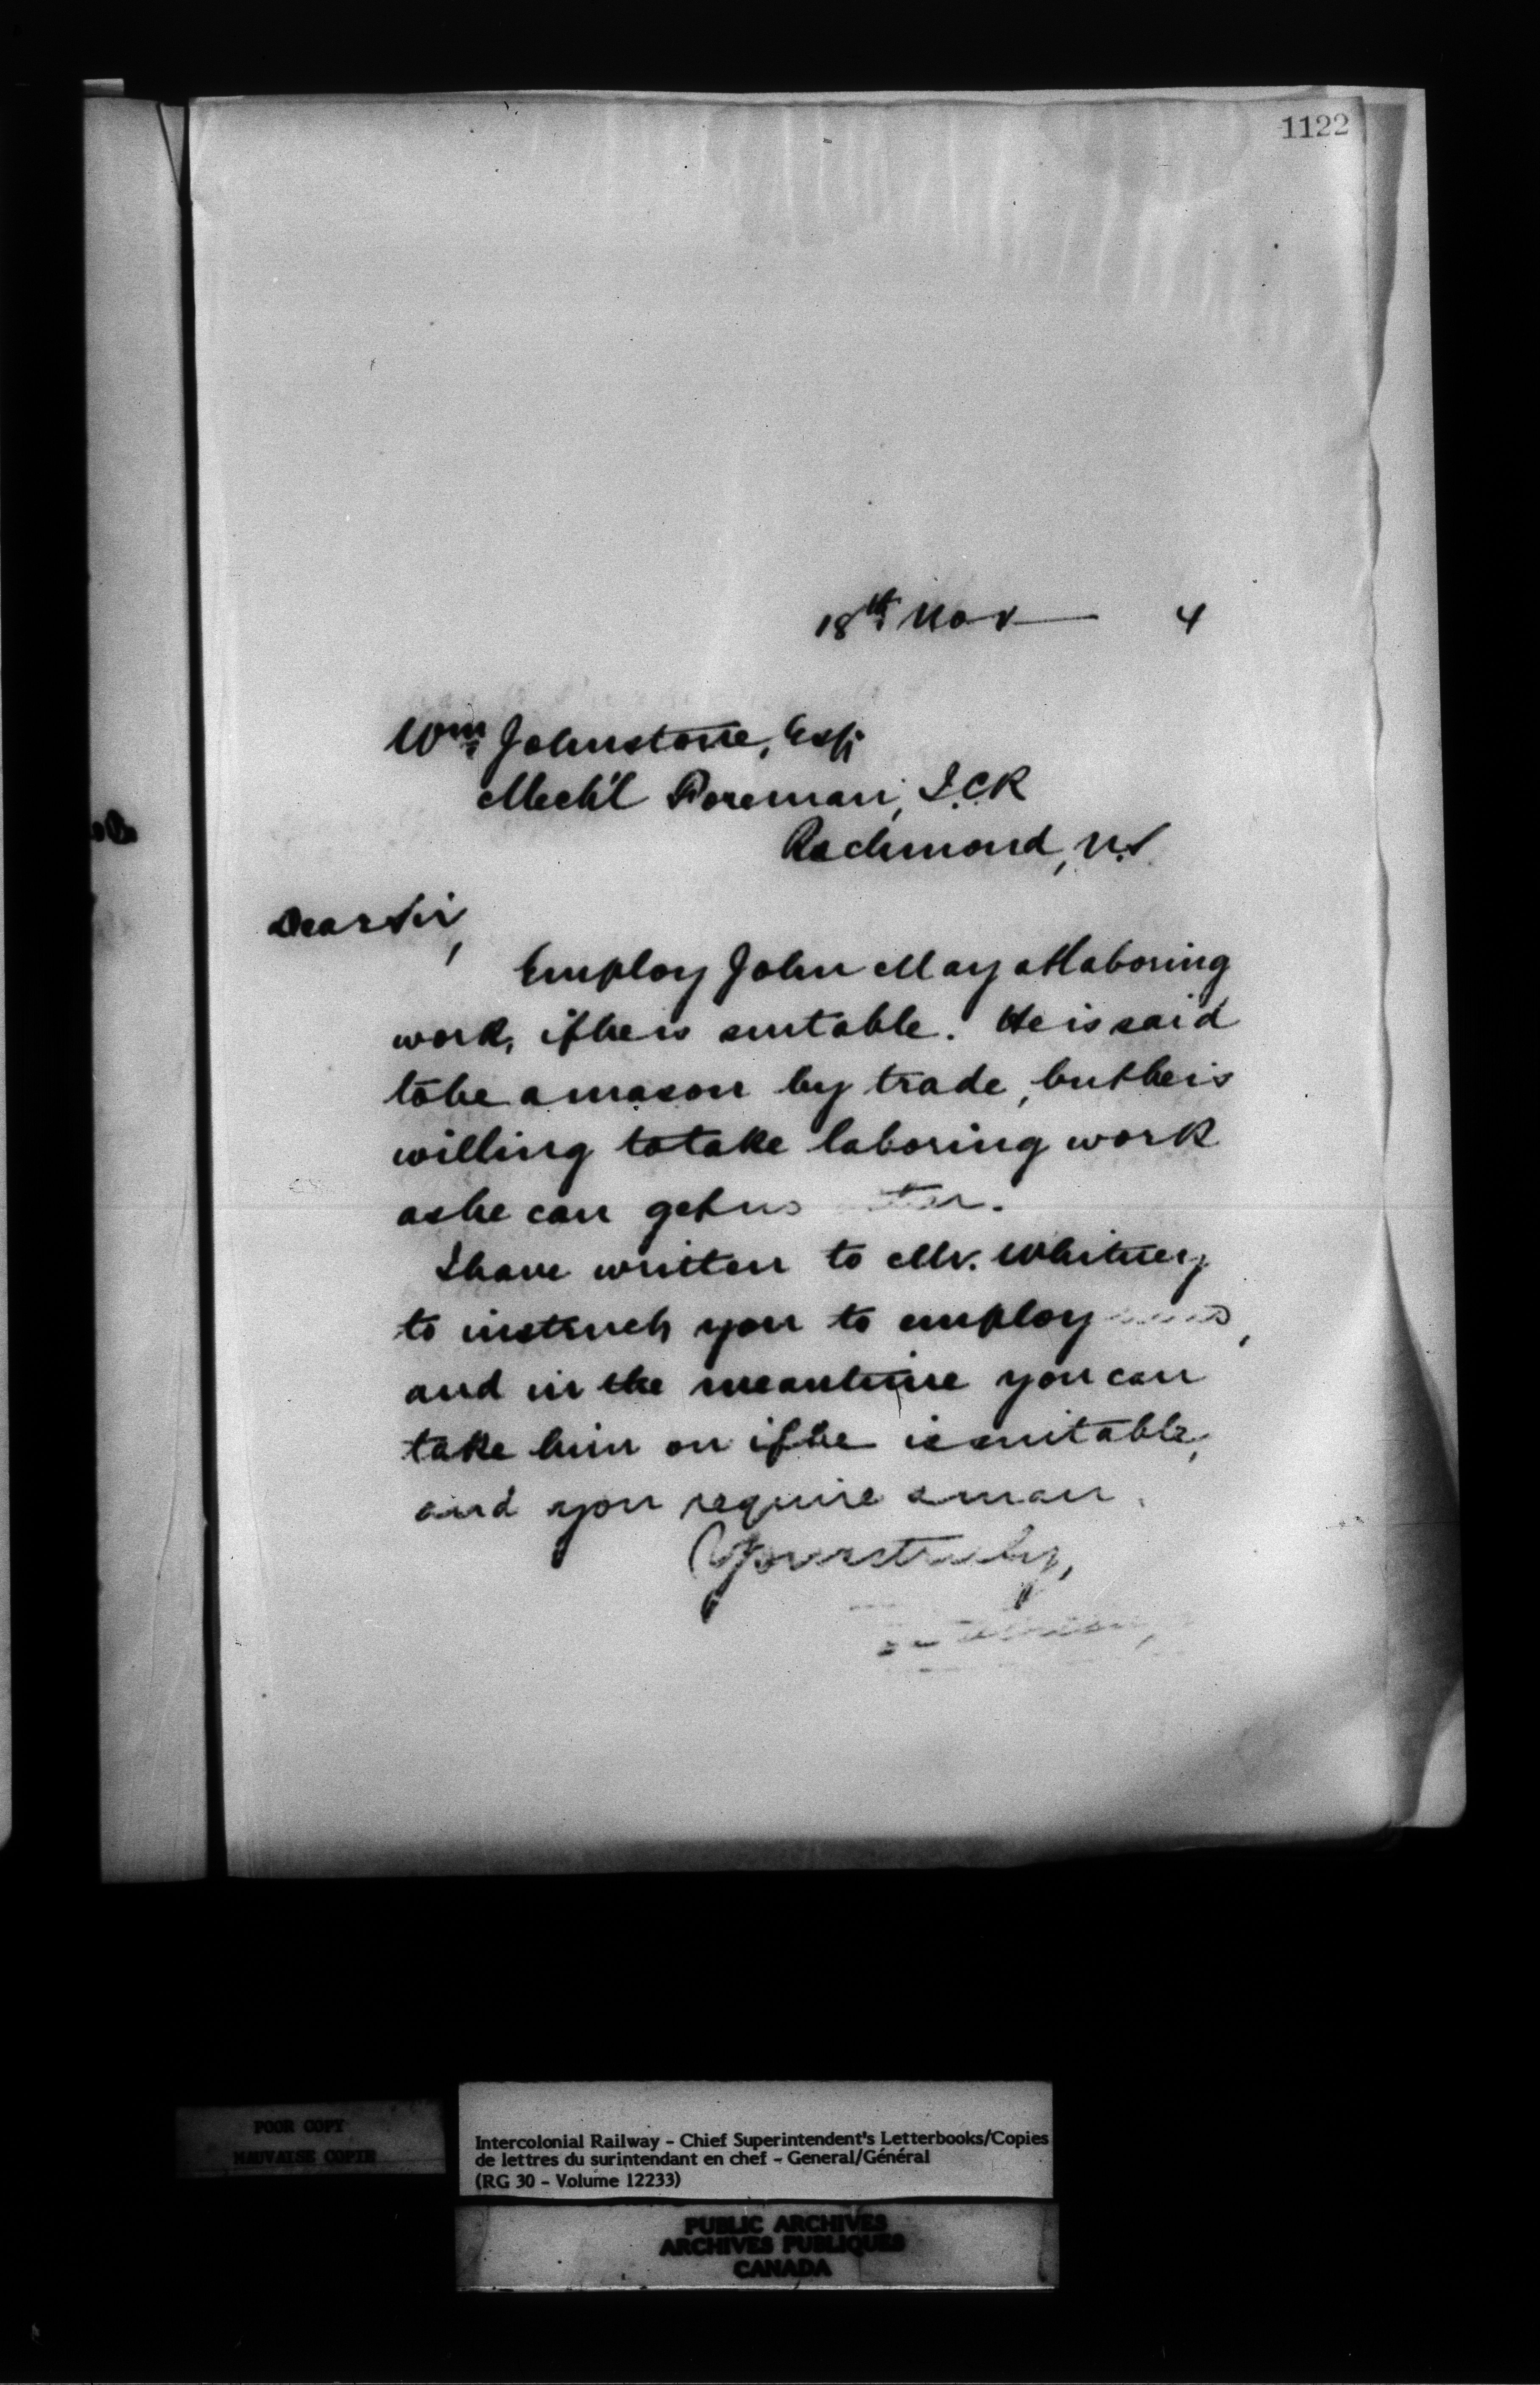 1122
18th Nov 4
Wm Johnstone, Esq
Mech'l Foreman, I.C.R
Richmond, N.S
Dear Sir,
Employ John May at laboring
work, if he is suitable. He is said
to be a mason by trade, but he is
willing to take laboring work
as he can get no
I have written to Mr. Whitney
to instruct you to employ
and in the meantime you can
take him on if he is suitable,
and you require a man.
Yours truly,
POOR COPY
MAUVAISE COPIE
Intercolonial Railway - Chief Superintendent's Letterbooks/Copies
de lettres du surintendant en chef - General/Général
(RG 30 - Volume 12233)
PUBLIC ARCHIVES
ARCHIVES PUBLIQUES
CANADA